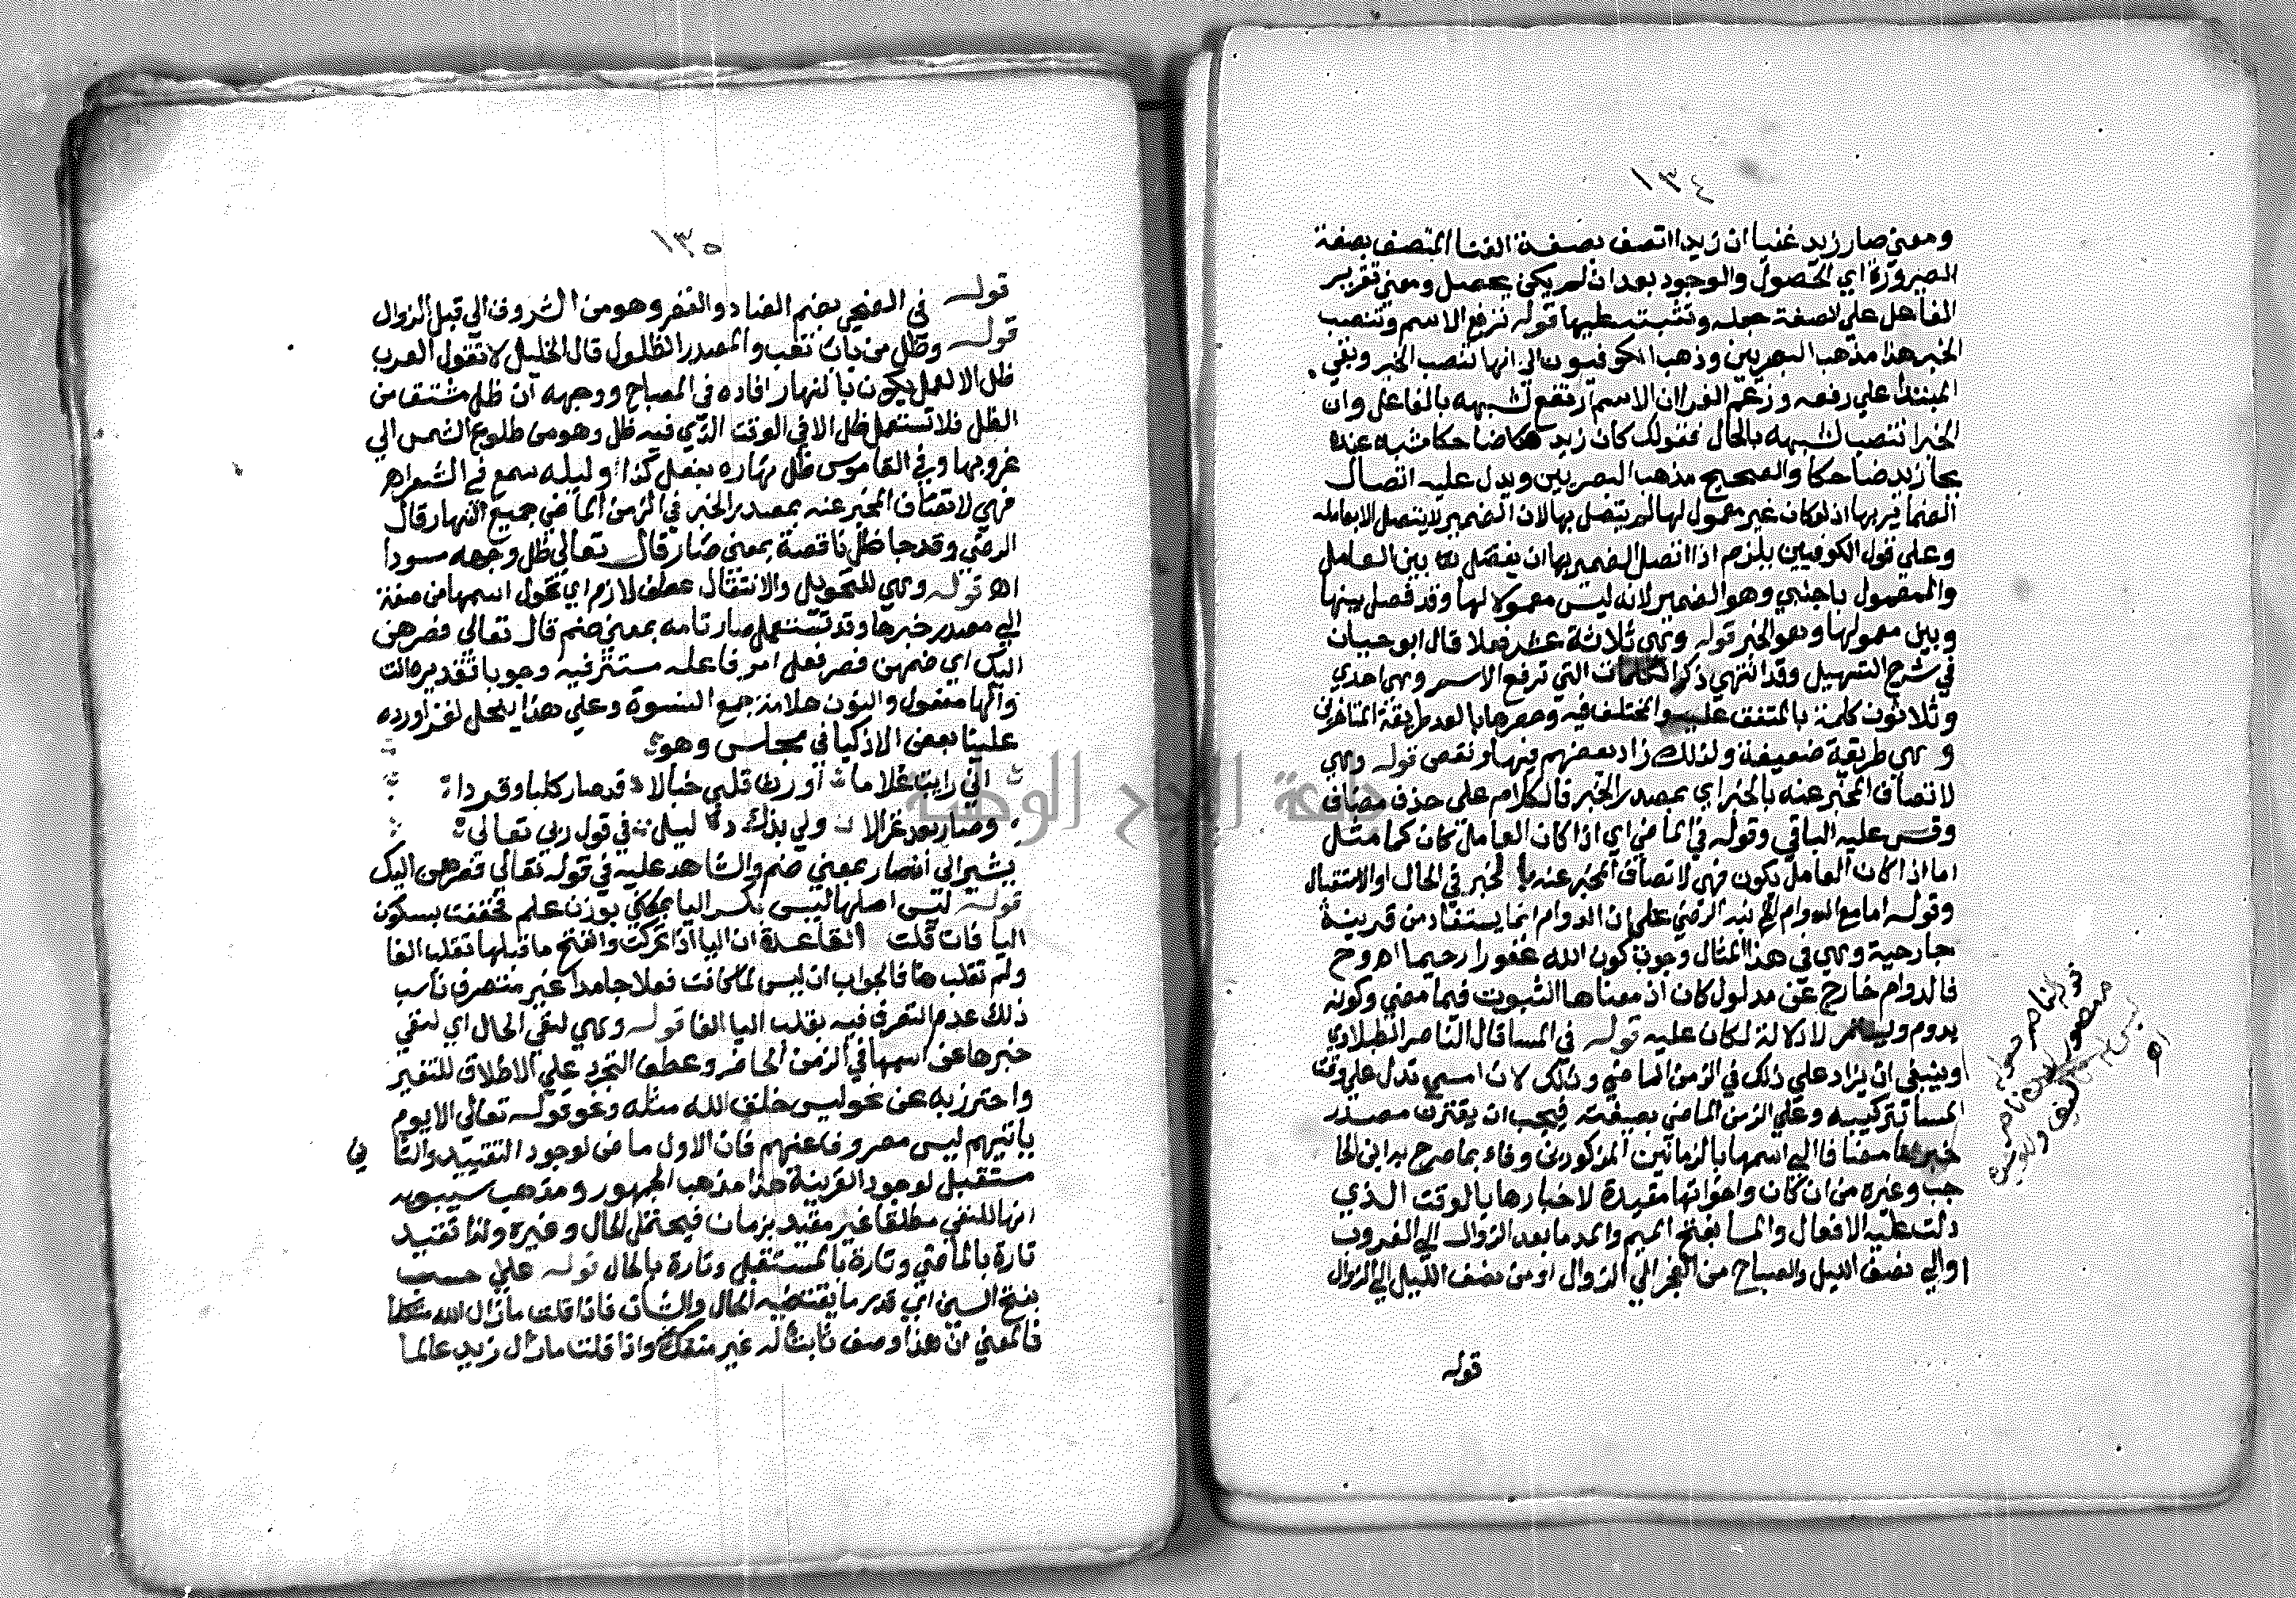 ١٣٤
ومعني صار زيد غنيا ان زيدا اتصف بصفة الغنا المتصف بصفة
الصيرورة اي الحصول والوجود بعد ان لم يكن يحصل ومعني تقرير
الفاعل علي صفة جعله وتثبته عليها قوله ترفع الاسم وتنصب
الخبر هذا مذهب البصريين وذهب الكوفيون الي انها تنصب الخبر وبقي
المبتدا علي رفعه وزعم الفرا ان الاسم ارتفع لشبهه بالفاعل وان
الخبر انتصب لشبهه بالحال فقولك كان زيد ضاحكا مشبه عنده
بجا زيد ضاحكا والصحيح مذهب البصريين ويدل عليه اتصال
الضماير بها اذ لو كان غير معمول لها لم يتصل بها لان الضمير لا يتصل الا بعامله
وعلي قول الكوفيين يلزم اذا اتصل الضمير بها ان يفصل بين العامل
والمعمول باجنبي وهو الضمير لانه ليس معمولا لها وقد فصل بينها
وبين معمولها وهو الخبر قوله وهي ثلاثة عشر فعلا قال ابو حيان
في شرح التسهيل وقد انتهي ذكر الكلمات التي ترفع الاسم وهي احدي
وثلاثون كلمة بالمتفق عليه والمختلف فيه وحصرها بالعد طريقة المتاخرين
وهي طريقة ضعيفة ولذلك زاد بعضهم فيها ونقص قوله وهي
لاتصاف المخبر عنه بالخبر اي بمصدر الخبر فالكلام علي حذف مضاف
وقس عليه الباقي وقوله في الماضي اي اذا كان العامل كان كما مثل
اما اذا كان العامل يكون فهي لاتصاف المخبر عنه بالخبر في الحال او الاستقبال
وقوله اما مع الدوام الخ نبه الرضي علي ان الدوام انما يستفاد من قرينة
خارجية وهي في هذا المثال وجوب كون الله غفورا رحيما اه وح
فالدوام خارج عن مدلول كان اذ معناها الثبوت فيما مضي وكونه
يدوم ويستمر لا دلالة لكان عليه قوله في المسا قال الناصر الطبلاوي
وينبغي ان يزاد علي ذلك في الزمن الماضي وذلك لان امسي تدل علي وقت
المسا بتركيبه وعلي الزمن الماضي بصيغته فيجب ان يقترن مصدر
خبرها مضافا الي اسمها بالزمانين المذكورين وفاء بما صرح به ابن الحا
جب وغيره من ان كان واخواتها مقيدة لاخبارها بالوقت الذي
دلت عليه الافعال والمسا بفتح الميم والمد ما بعد الزوال الي الغروب
اوالي نصف الليل والصباح من الفجر الي الزوال او من نصف الليل الي الزوال
قوله
١٣٥
قوله في الضحي بضم الضاد والقصر وهو من الشروق الي قبل الزوال
قوله وظل من باب تعب والمصدر الظلول قال الخليل لا تقول العرب
ظل الا لعمل يكون بالنهار افاده في المصباح ووجهه ان ظل مشتق من
الظل فلا تستعمل ظل الا في الوقت الذي فيه ظل وهو من طلوع الشمس الي
غروبها وفي القاموس ظل نهاره يفعل كذا وليله سمع في الشعر اه
فهي لاتصاف المخبر عنه بمصدر الخبر في الزمن الماضي جميع النهار قال
الرضي وقد جا ظل ناقصة بمعني صار قال تعالي ظل وجهه مسودا
اه قوله وهي للتحويل والانتقال عطف لازم اي تحول اسمها من صفة
الي مصدر خبرها وقد تستعمل صار تامه بمعني ضم قال تعالي فصرهن
اليك اي ضمهن فصر فعل امر فاعله مستتر فيه وجوبا تقديره انت
والها مفعول والنون علامة جمع النسوة وعلي هذا ينحل لغز اورده
علينا بعض الاذكيا في مجلس وهو
اني رايت غلاما اورث قلبي خبالا قد صار كلبا وقردا
وصار بعد غزالا ولي بذلك دليل في قول ربي تعالي
يشير الي ان صار بمعني ضم والشاهد عليه في قوله تعالي فصرهن اليك
قوله ليس اصلها ليس بكسر اليا بوزن علم فخففت بسكون
اليا فان قلت القاعدة ان اليا اذا تحركت وانفتح ما قبلها تقلب الفا
ولم تقلب هنا فالجواب ان ليس لما كانت فعلا جامدا غير متصرف ناسب
ذلك عدم التصرف فيه بقلب اليا الفا قوله وهي لنفي الحال اي لنفي
خبرها عن اسمها في الزمن الحاضر وعطف التجرد علي الاطلاق للتفسير
واحترز به عن نحو ليس خلق الله مثله ونحو قوله تعالي الا يوم
ياتيهم ليس مصروفا عنهم فان الاول ماض لوجود التقييد والثا ني
مستقبل لوجود القرينة هذا مذهب الجمهور ومذهب سيبويه
انها للنفي مطلقا غير مقيد بزمان فيحتمل الحال وغيره ولذا تقيد
تارة بالماضي وتارة بالمستقبل وتارة بالحال قوله علي حسب
بفتح السين اي قدر ما يقتضيه الحال والشان فاذا قلت ما زال الله متكلما
فالمعني ان هذا وصف ثابت له غير منفك واذا قلت ما زال زيد عالما